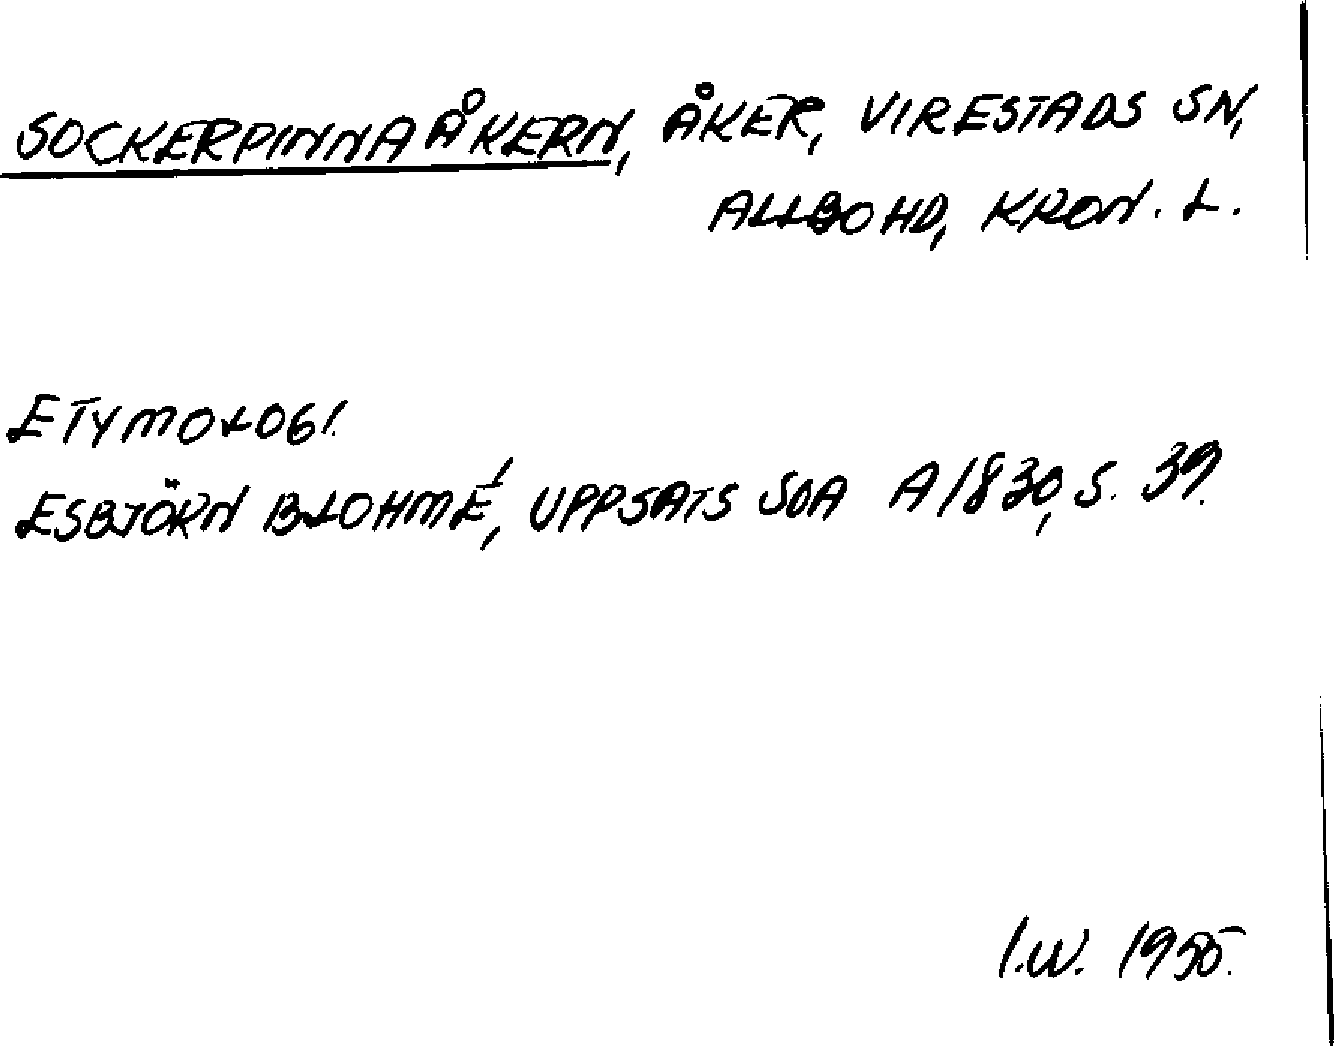 SOCKERPINNAÅKERN, ÅKER, VIRESTADS SN,
ALLBO HD, KRON. L.
ETYMOLOGI.
ESBJÖRN BLOHMÉ, UPPSATS SOA A 1830, S. 39.
I.W. 1955.